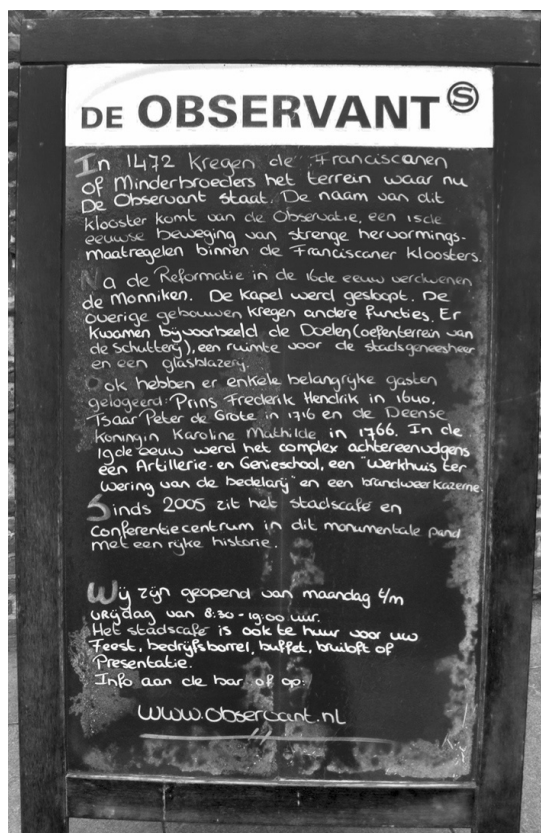 DE OBSERVANT S
In 1472 kregen de Franciscanen
of Minderbroeders het terrein waar nu
De Observant staat. De naam van dit
klooster komt van de Observatie, een 15de
eeuwse beweging van strenge hervormings-
maatregelen binnen de Franciscaner kloosters.
Na de Reformatie in de 16de eeuw verdwenen
de monniken. De kapel werd gesloopt. De
overige gebouwen kregen andere functies. Er
kwamen bijvoorbeeld de Doelen (oefenterrein van
de schutterij), een ruimte voor de stadsgeneesheer
en een glasblazerij.
Ook hebben er enkele belangrijke gasten
gelogeerd: Prins Frederik Hendrik in 1640,
Tsaar Peter de Grote in 1716 en de Deense
Koningin Karoline Mathilde in 1766. In de
19de eeuw werd het complex achtereenvolgens
een Artillerie- en Genieschool, een "werkhuis ter
wering van de bedelarij" en een brandweerkazerne.
Sinds 2005 zit het stadscafé en
Conferentiecentrum in dit monumentale pand
met een rijke historie.
Wij zijn geopend van maandag t/m
vrijdag van 8:30 - 19:00 uur.
Het stadscafé is ook te huur voor uw
Feest, bedrijfsborrel, buffet, bruiloft of
Presentatie.
Info aan de bar of op:
www.observant.nl